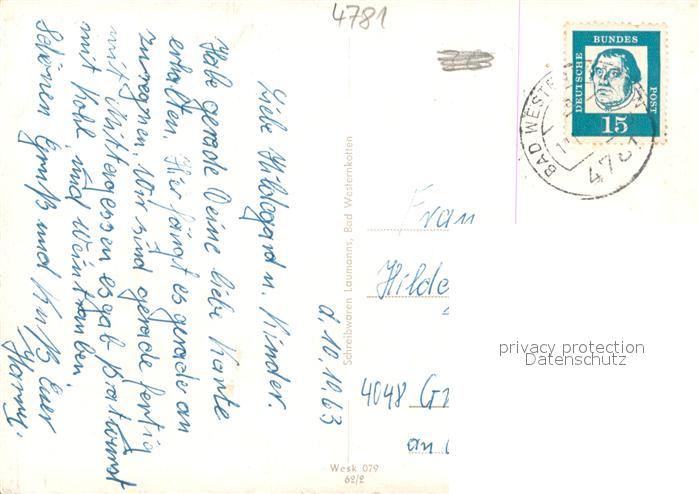 4781
DEUTSCHE
BUNDES
POST
15
BAD WESTER
4781
d. 10.10.63
Liebe Hildegard u. Kinder.
Habe gerade Deine liebe Karte
erhalten. Hier fängt es gerade an
zu regnen. Wir sind gerade fertig
mit Mittagessen es gab Bratwurst
mit Kohl und Weintrauben.
Schönen Gruß und Kuß Euer
Schreibwaren Laumanns, Bad Westernkotten
Frau
Hilde
4048 Gr
an
Wesk 079
62/2
privacy protection
Datenschutz